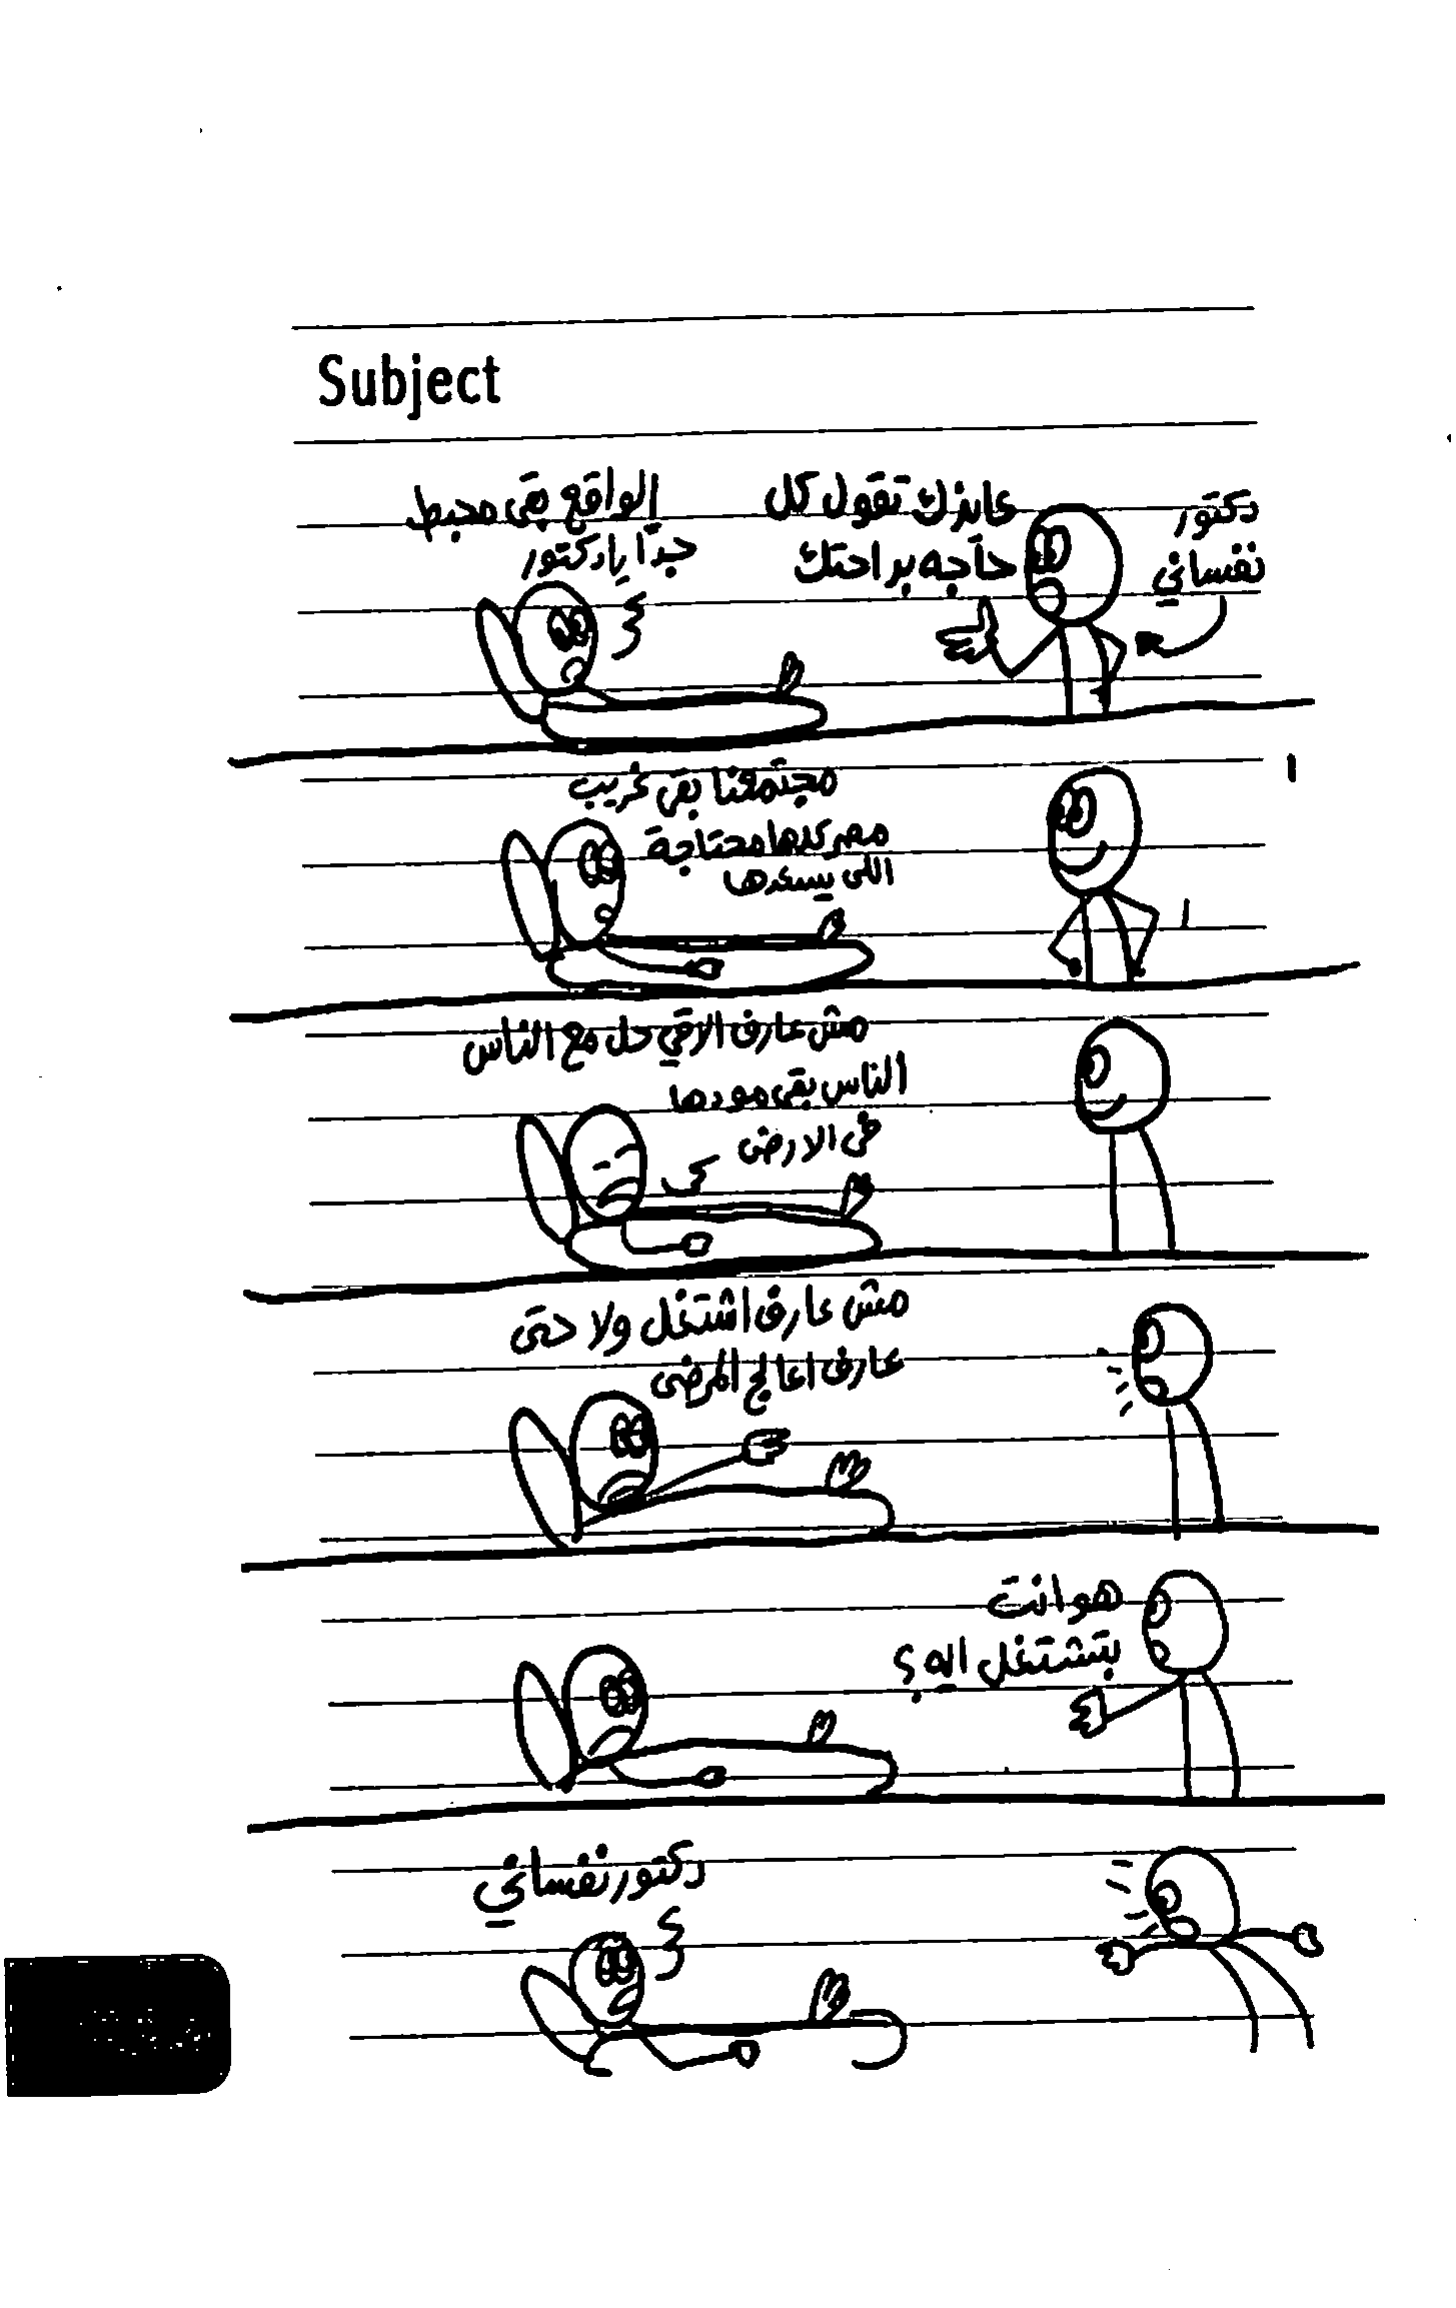 Subject
دكتور
نفساني
عايزك تقول كل
حاجه براحتك
الواقع بقى محبط
جدًا يا دكتور
مجتمعنا بقى غريب
مصر كلها محتاجة
اللى يسعدها
مش عارف الاقي حل مع الناس
الناس بقى مودها
فى الارض
مش عارف اشتغل ولا حتى
عارف اعالج المرضى
هو انت
بتشتغل ايه؟
دكتور نفساني